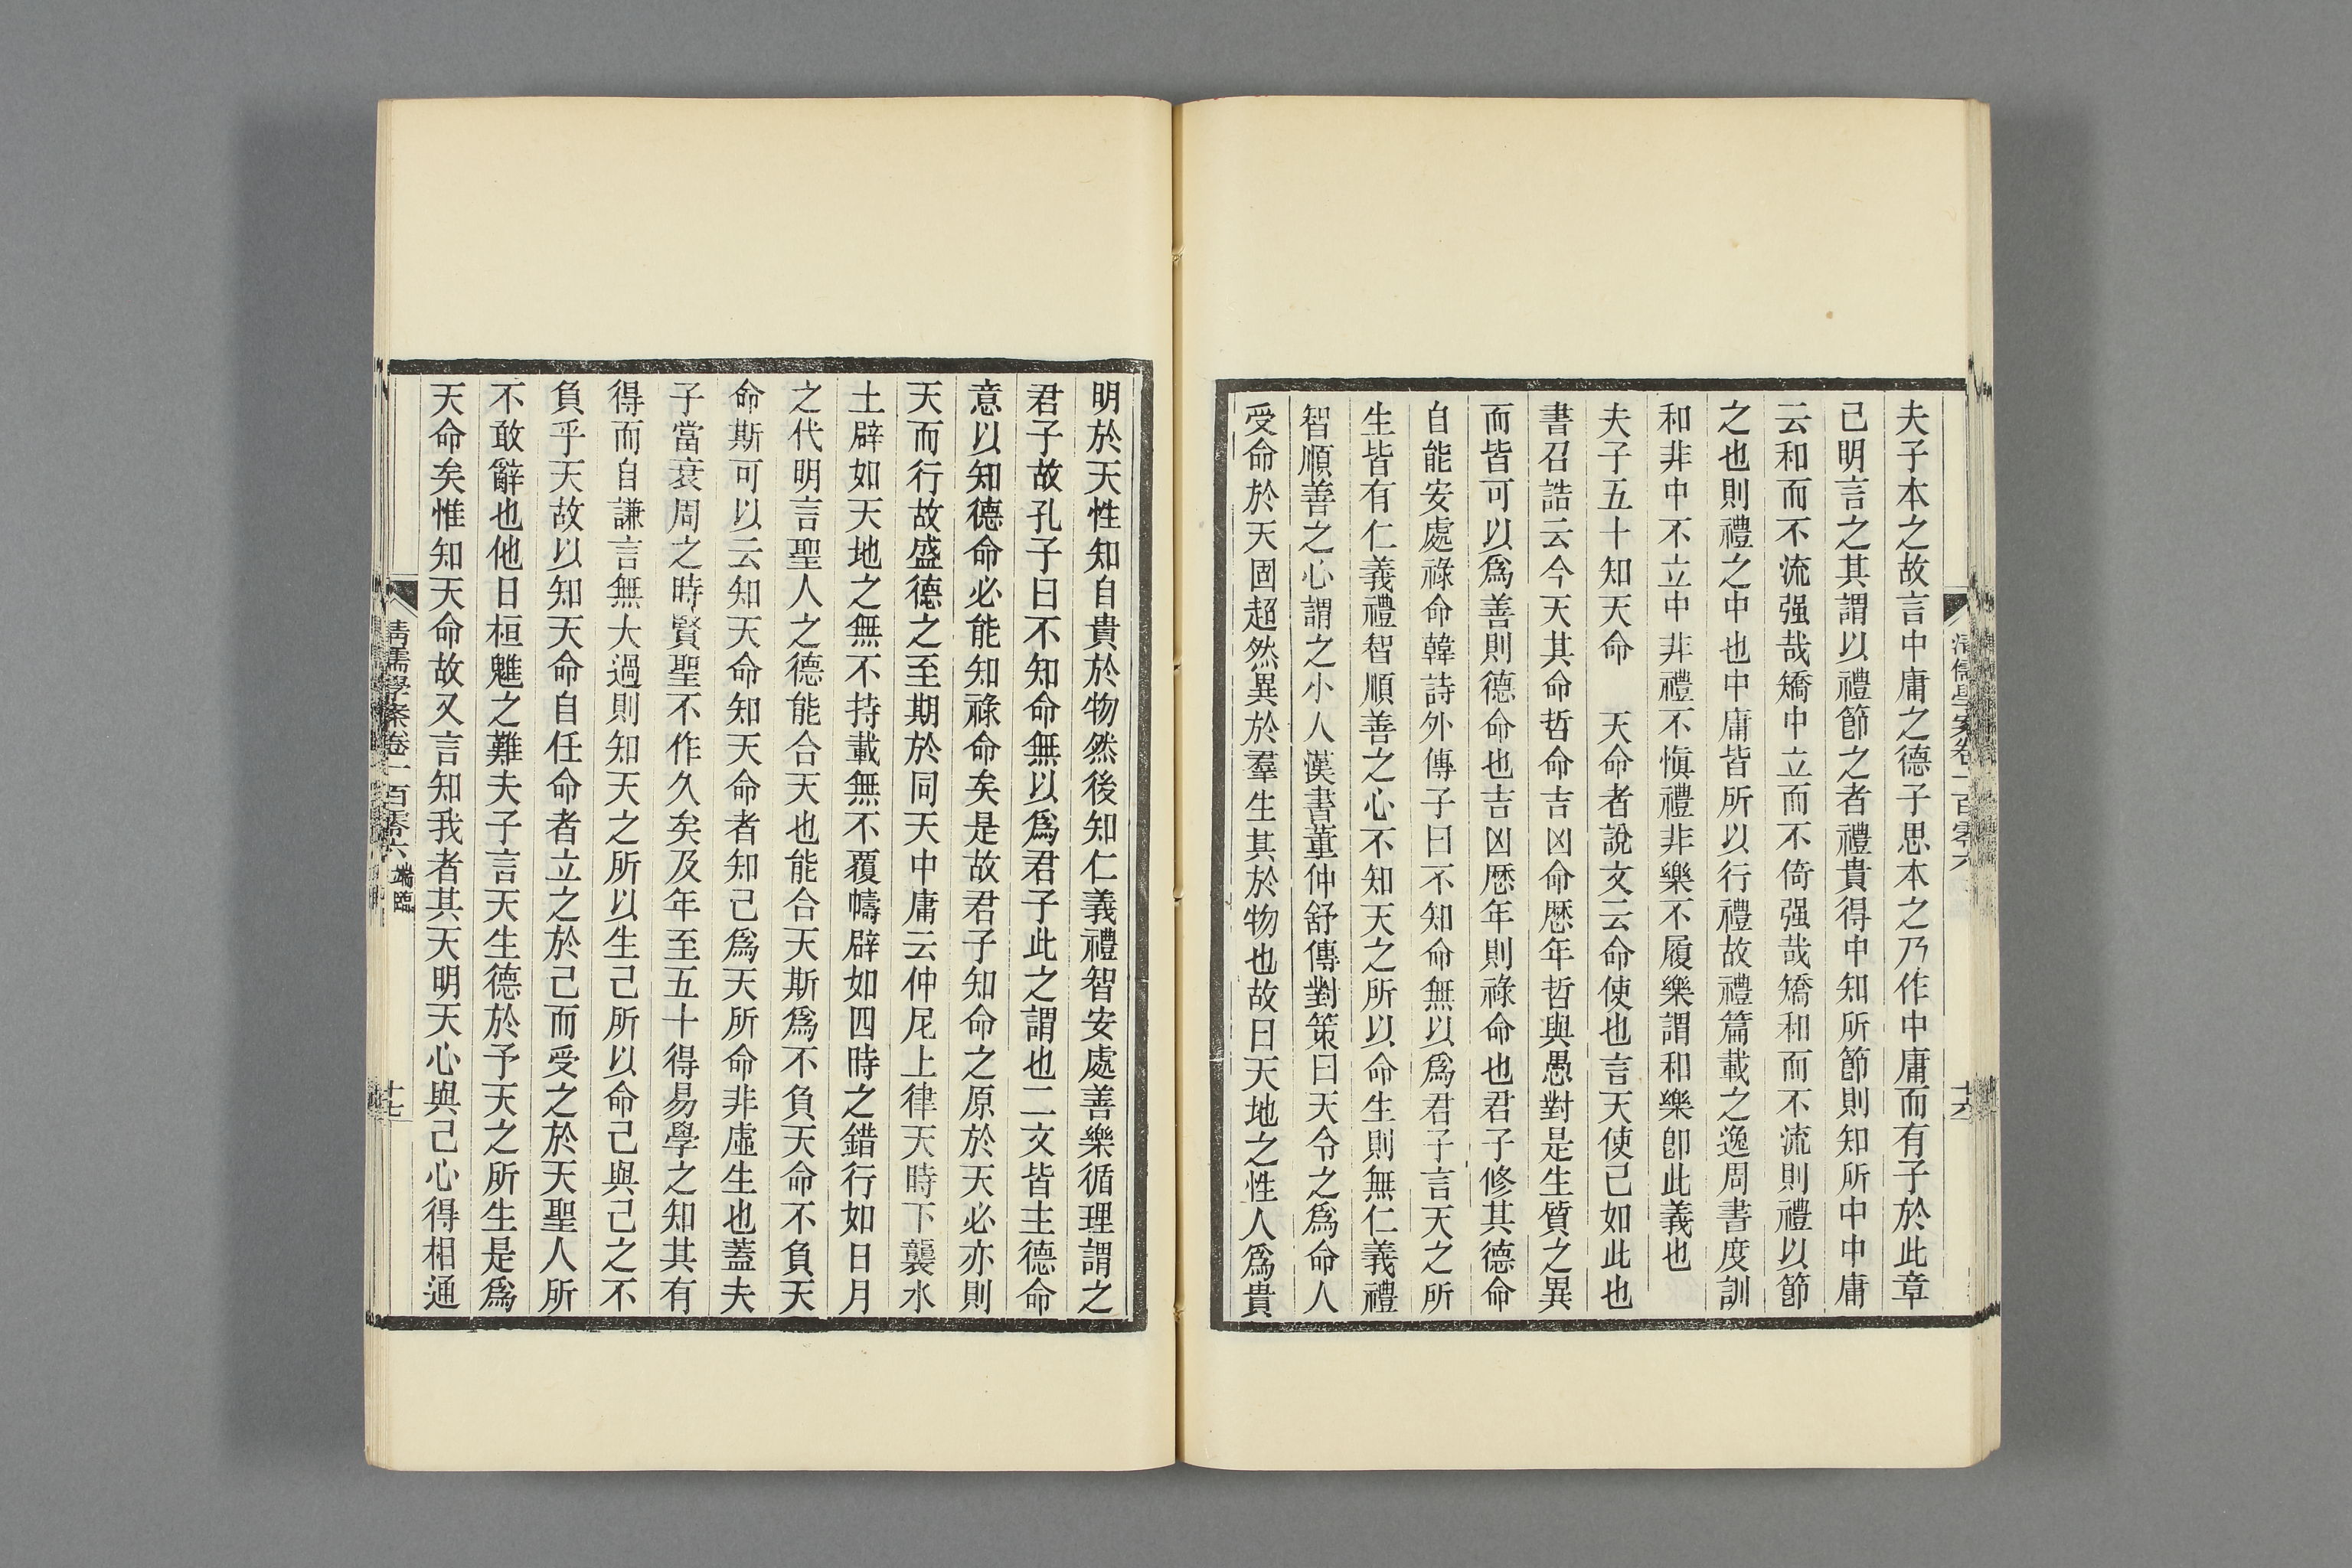 清儒學案卷一百零六
十六
夫子本之故言中庸之德子思本之乃作中庸而有子於此章
己明言之其謂以禮節之者禮貴得中知所節則知所中中庸
云和而不流强哉矯中立而不倚强哉矯和而不流則禮以節
之也則禮之中也中庸皆所以行禮故禮篇載之逸周書度訓
和非中不立中非禮不愼禮非樂不履樂謂和樂卽此義也
夫子五十知天命　天命者說文云命使也言天使己如此也
書召誥云今天其命哲命吉凶命厯年哲與愚對是生質之異
而皆可以爲善則德命也吉凶厯年則祿命也君子修其德命
自能安處祿命韓詩外傳子曰不知命無以爲君子言天之所
生皆有仁義禮智順善之心不知天之所以命生則無仁義禮
智順善之心謂之小人漢書董仲舒傳對策曰天令之爲命人
受命於天固超然異於羣生其於物也故曰天地之性人爲貴
明於天性知自貴於物然後知仁義禮智安處善樂循理謂之
君子故孔子曰不知命無以爲君子此之謂也二文皆主德命
意以知德命必能知祿命矣是故君子知命之原於天必亦則
天而行故盛德之至期於同天中庸云仲尼上律天時下襲水
土辟如天地之無不持載無不覆幬辟如四時之錯行如日月
之代明言聖人之德能合天也能合天斯爲不負天命不負天
命斯可以云知天命知天命者知己爲天所命非虛生也蓋夫
子當衰周之時賢聖不作久矣及年至五十得易學之知其有
得而自謙言無大過則知天之所以生己所以命己與己之不
負乎天故以知天命自任命者立之於己而受之於天聖人所
不敢辭也他日桓魋之難夫子言天生德於予天之所生是爲
天命矣惟知天命故又言知我者其天明天心與己心得相通
清儒學案卷一百零六
端臨
十七